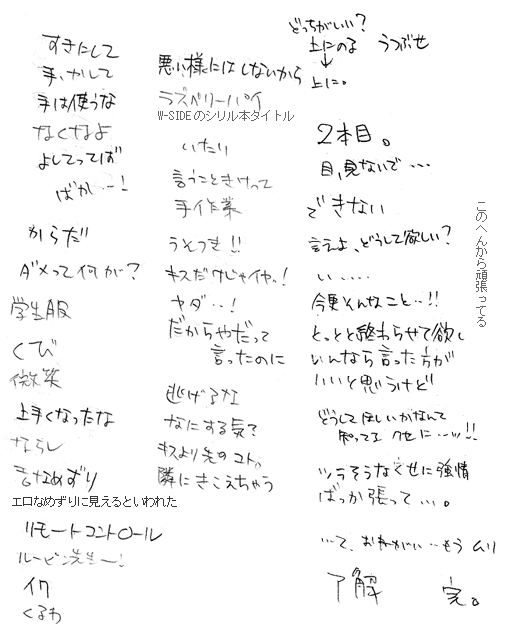 すきにして
手、かして
手は使うな
なくなよ
よしてってば
ばか…!
からだ
ダメって何が?
学生服
くび
微笑
上手くなったな
ならし
舌なめずり
エロなめずりに見えるといわれた
リモートコントロール
ルーピン先生ー!
イク
くるわ
悪い様にはしないから
ラズベリーパイ
W-SIDEのシリル本タイトル
いたり
言うこときけって
手作業
うそつき!!
キスだけじゃイヤ、!
ヤダ…!
だからやだって
言ったのに
逃げるな
なにする気?
キスより先のコト。
隣にきこえちゃう
どっちがいい?
上にのる うつぶせ
↓
上に。
2本目。
目、見ないで…
できない
言えよ、どうして欲しい?
い.....
今更そんなこと…!!
とっとと終わらせて欲し
いんなら言った方が
いいと思うけど
どうしてほしいかなんて
知ってるクセに…ッ!!
ツラそうなくせに強情
ばっか張って…。
…て、おねがい…もう ムリ
了解 完。
このへんから頑張ってる